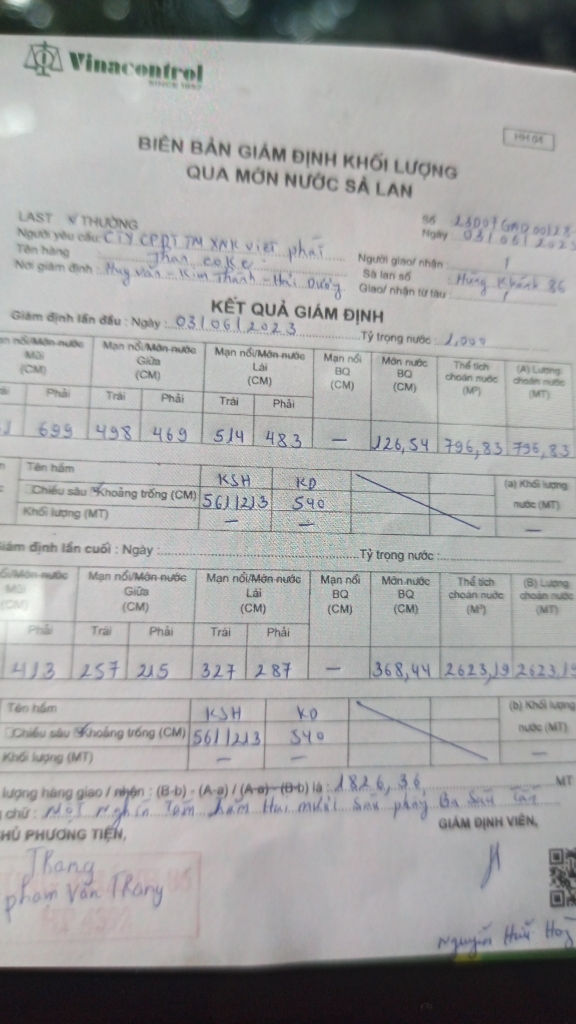 Vinacontrol
SINCE 1957
HH 04
BIÊN BẢN GIÁM ĐỊNH KHỐI LƯỢNG
QUA MỚN NƯỚC SÀ LAN
LAST THƯỜNG
Số
Ngày 03/06/2023
Người yêu cầu: CTY CPĐT TM XNK Việt phát
Tên hàng Than coke
Nơi giám định: Huy Văn - Kim Thành - Hải Dương
Người giao/ nhận
Sà lan số : Hùng Khánh 86
Giao/ nhận từ tàu
KẾT QUẢ GIÁM ĐỊNH
Giám định lần đầu : Ngày : 03/06/2023 Tỷ trọng nước : 1,000
Mạn nổi/Mớn nước Giữa (CM) Mạn nổi/Mớn nước Lái (CM) Mạn nổi BQ (CM) Mớn nước BQ (CM) Thể tích choán nước (M³) (A) Lượng choán nước (MT)
Phải Trái Phải Trái Phải
699 498 469 514 483 — 126,54 796,83 796,83
Tên hầm KSH KD (a) Khối lượng nước (MT)
Chiều sâu Khoảng trống (CM) 561/213 540
Khối lượng (MT) — — —
Giám định lần cuối : Ngày : Tỷ trọng nước :
Mũi (CM) Mạn nổi/Mớn nước Giữa (CM) Mạn nổi/Mớn nước Lái (CM) Mạn nổi BQ (CM) Mớn nước BQ (CM) Thể tích choán nước (M³) (B) Lượng choán nước (MT)
Phải Trái Phải Trái Phải
413 257 215 327 287 — 368,44 2623,19 2623,19
Tên hầm KSH KD (b) Khối lượng nước (MT)
Chiều sâu Khoảng trống (CM) 561/213 540
Khối lượng (MT) — — —
lượng hàng giao / nhận : (B-b) - (A-a) / (A-a) - (B-b) là : 1826,36 MT
chữ : Một Nghìn Tám trăm Hai mươi Sáu phẩy Ba Sáu Tấn
CHỦ PHƯƠNG TIỆN, GIÁM ĐỊNH VIÊN,
Thang
phạm Văn Thang
Nguyễn Hữu